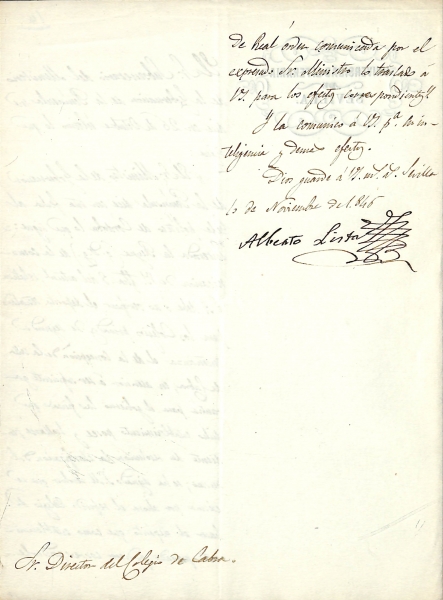 de Real órden comunicada por el
expresado Sr. Ministro lo traslado á
VS. para los efectos correspondientes."
Y la comunico á VS. pª su in-
teligencia y demas efectos.
Dios guarde á VS. mˢ. aˢ. Sevilla
de Noviembre de 1846
Alberto Lista
Sr. Director del Colegio de Cabra.